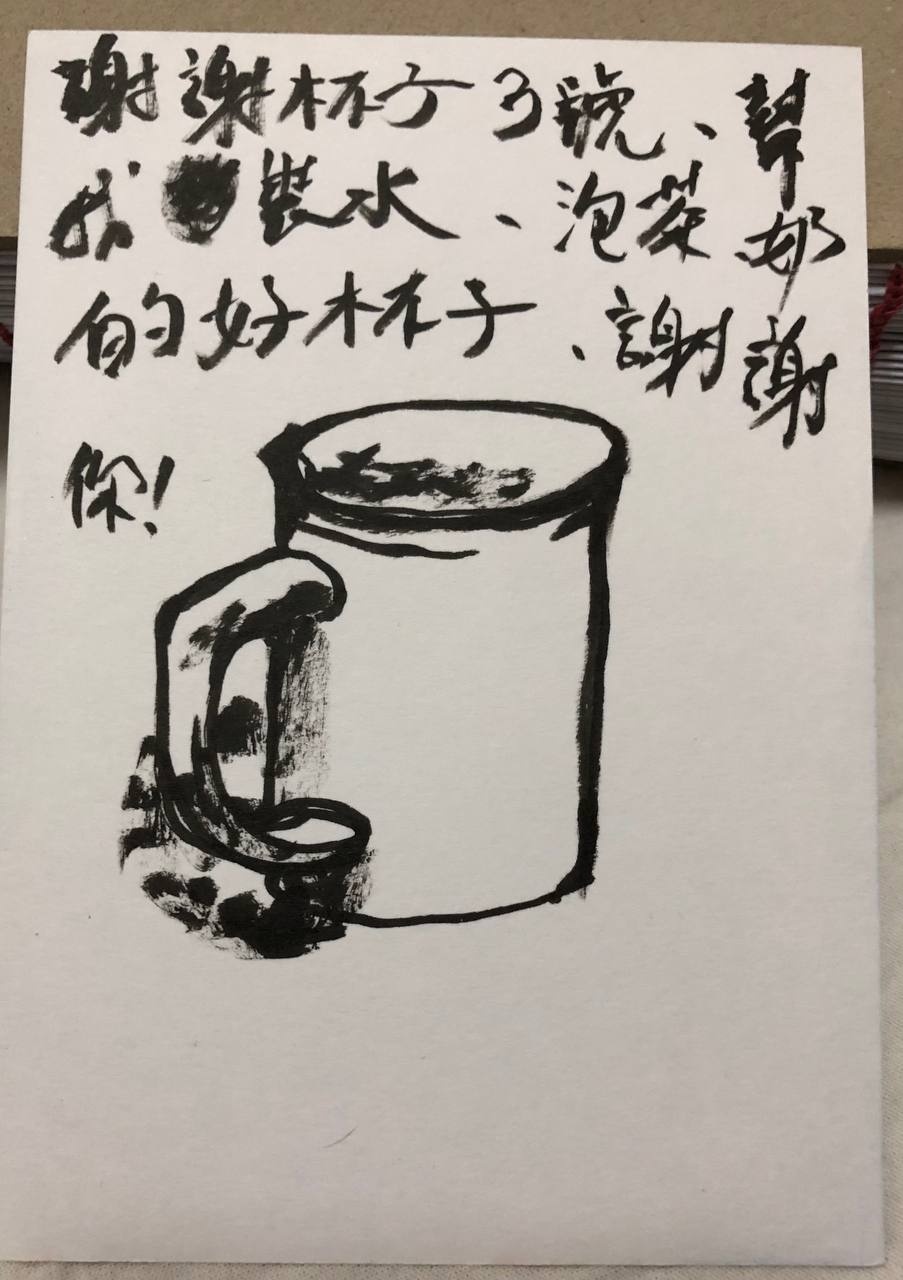 謝謝杯子3號、幫
我裝水、泡茶奶
的好杯子、謝謝
你!